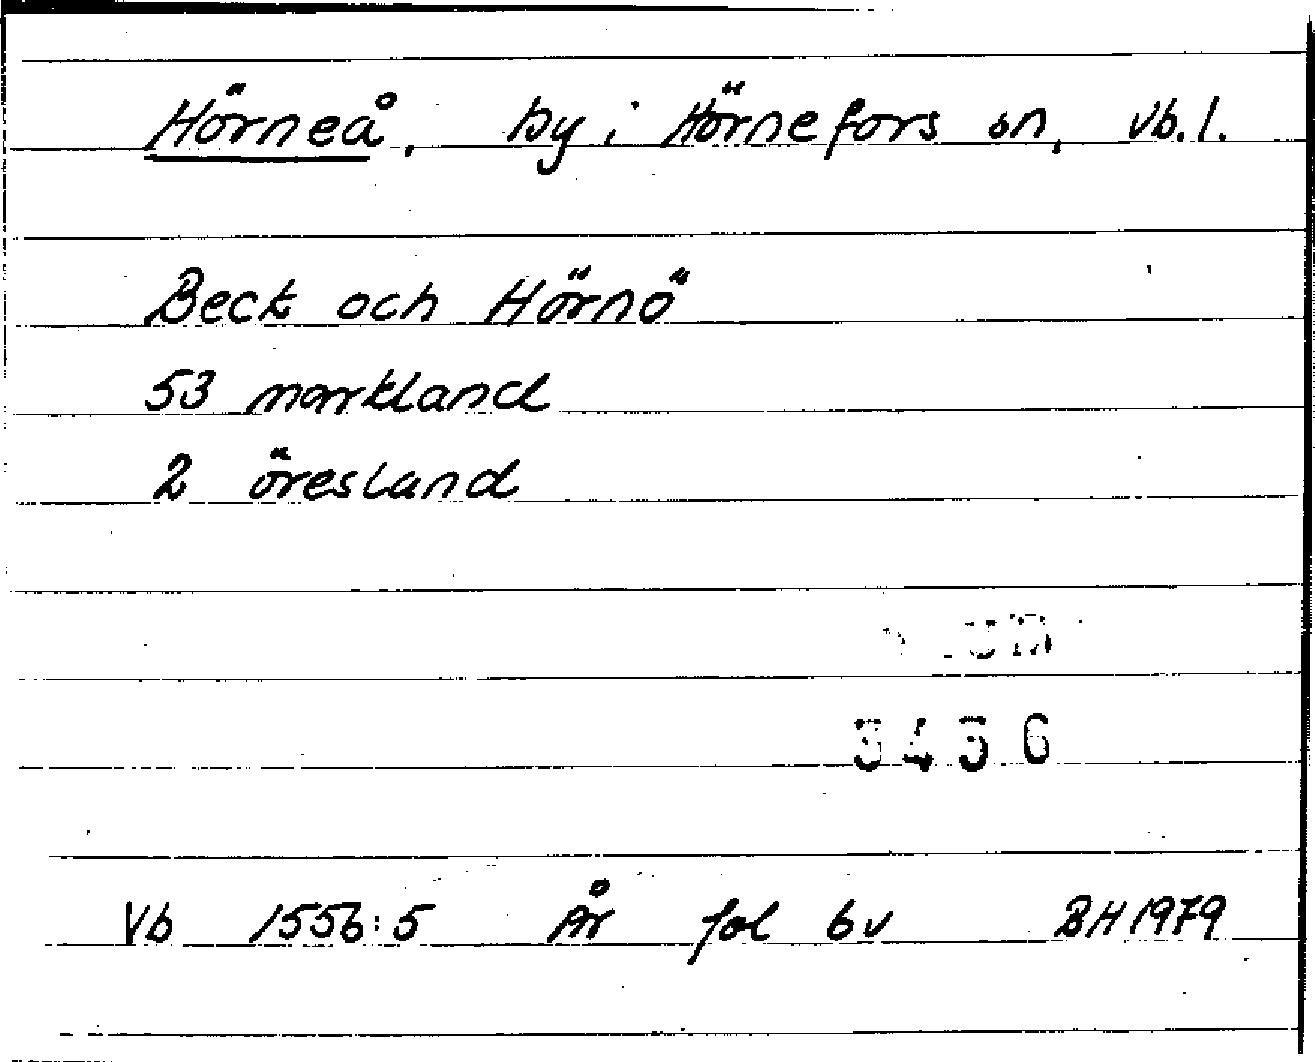 Hörneå, by i Hörnefors sn, Vb. l.
Beck och Hörnö
53 markland
2 öresland
3436
Vb 1556:5 År fol 6v BH 1979